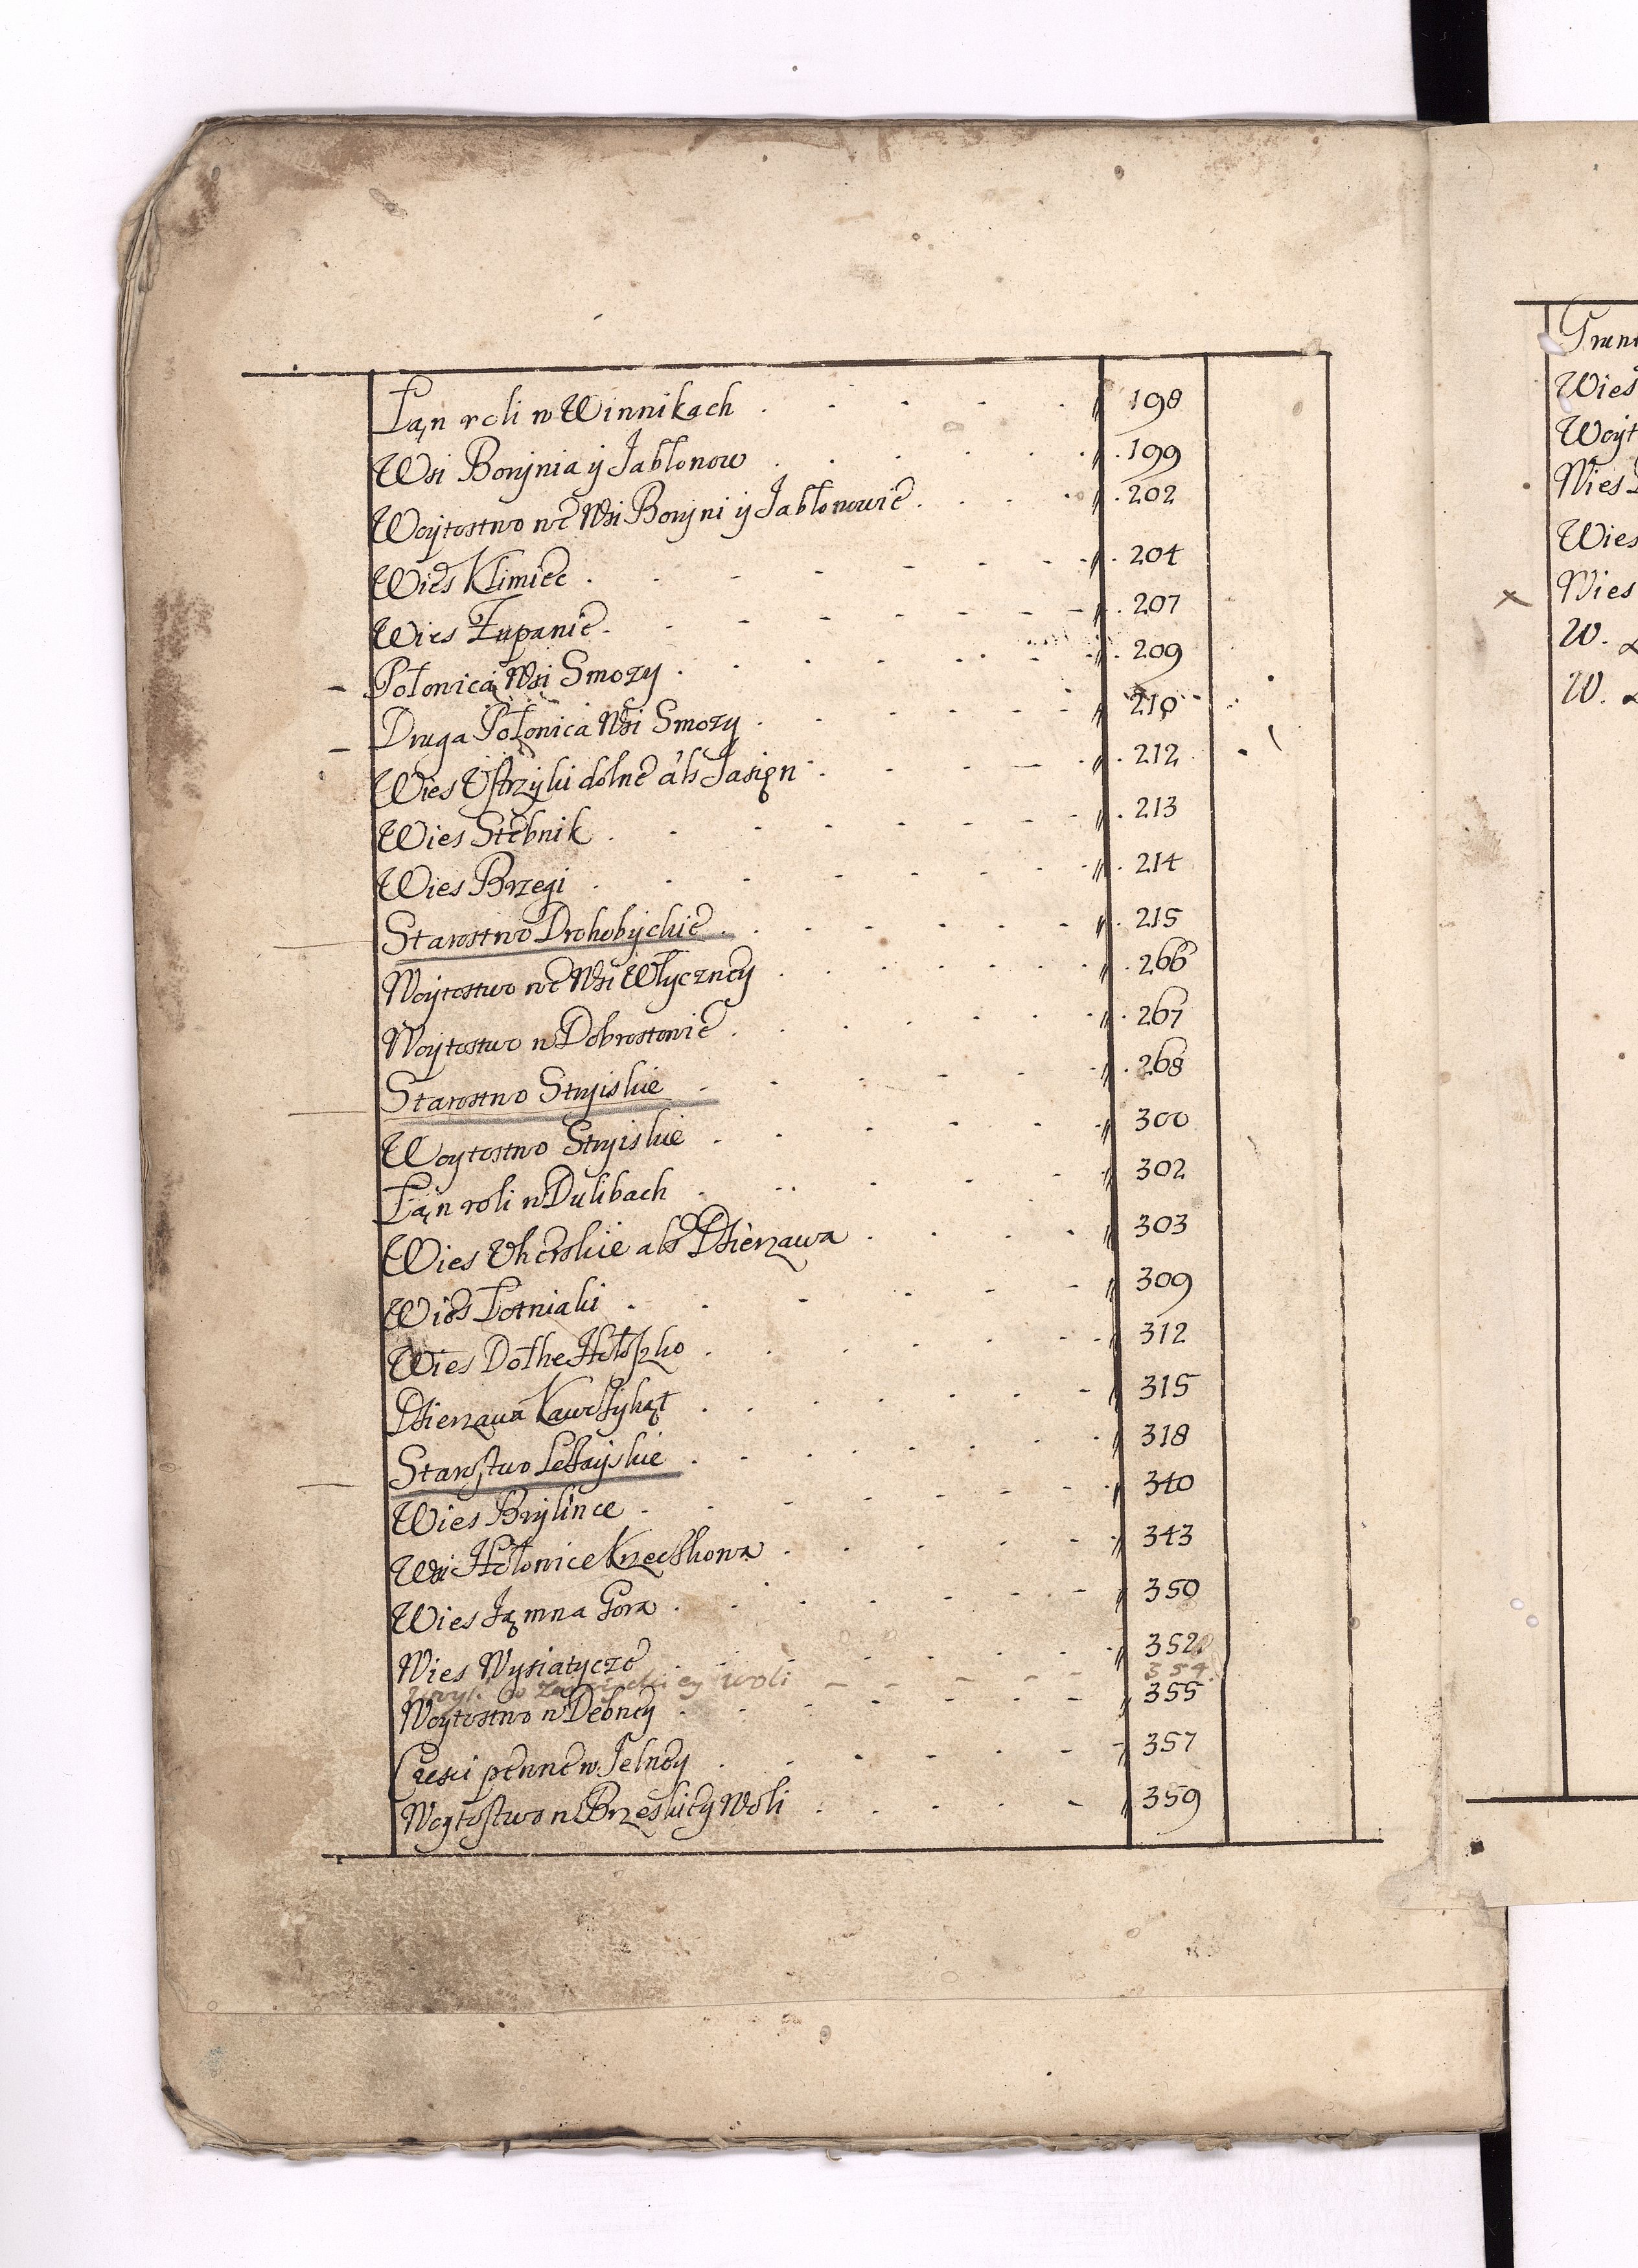 Łąn roli w Winnikach . . . . . " 198
Wsi Borynia ÿ Jabłonow . . . . . " . 199
Woÿtostwo we Wsi Boryni ÿ Jabłonowie . . . " . 202
Wies Klimiec . . . . . . " . 204
Wies Zupanie . . . . . . " . 207
Połonica Wsi Smozy . . . . . . " . 209
Druga Połonica Wsi Smozy . . . . . " 210
Wies Ustrzyki dolne als Jasięn . . . . . " . 212
Wies Stebnik . . . . . . " . 213
Wies Brzegi . . . . . . " . 214
Starostwo Drohobyckie . . . . . . " . 215
Woytostwo we Wsi Włyczney . . . . . " . 266
Woytostwo w Dobrostowie . . . . . " . 267
Starostwo Stryiskie . . . . . " . 268
Woytostwo Stryiskie . . . . . " 300
Łąn roli w Dulibach . . . . " 302
Wies Uherskie als Dzierzawa . . . . " 303
Wies Łotniaki . . . . . " 309
Wies Dołhe Hołoszko . . . . . " 312
Dzierzawa Kawczykąt . . . . . " 315
Starostwo Leżayskie . . . . . . " 318
Wies Brylince . . . . . . " 340
Wsi Hołowice Krzeczkowa . . . . . " 343
Wies Jamna Gora . . . . . . " 350
Wies Wysiatycze . . . . . . " 352
woli - - - - 354
Woytostwo w Debney . . . . . " 355
Czesci pewne w Jelney . . . . . " 357
Woytostwo w Brzeskiey Woli . . . . " 359
Wies
Woyt
Wies
Wies
Wies
W.
W.